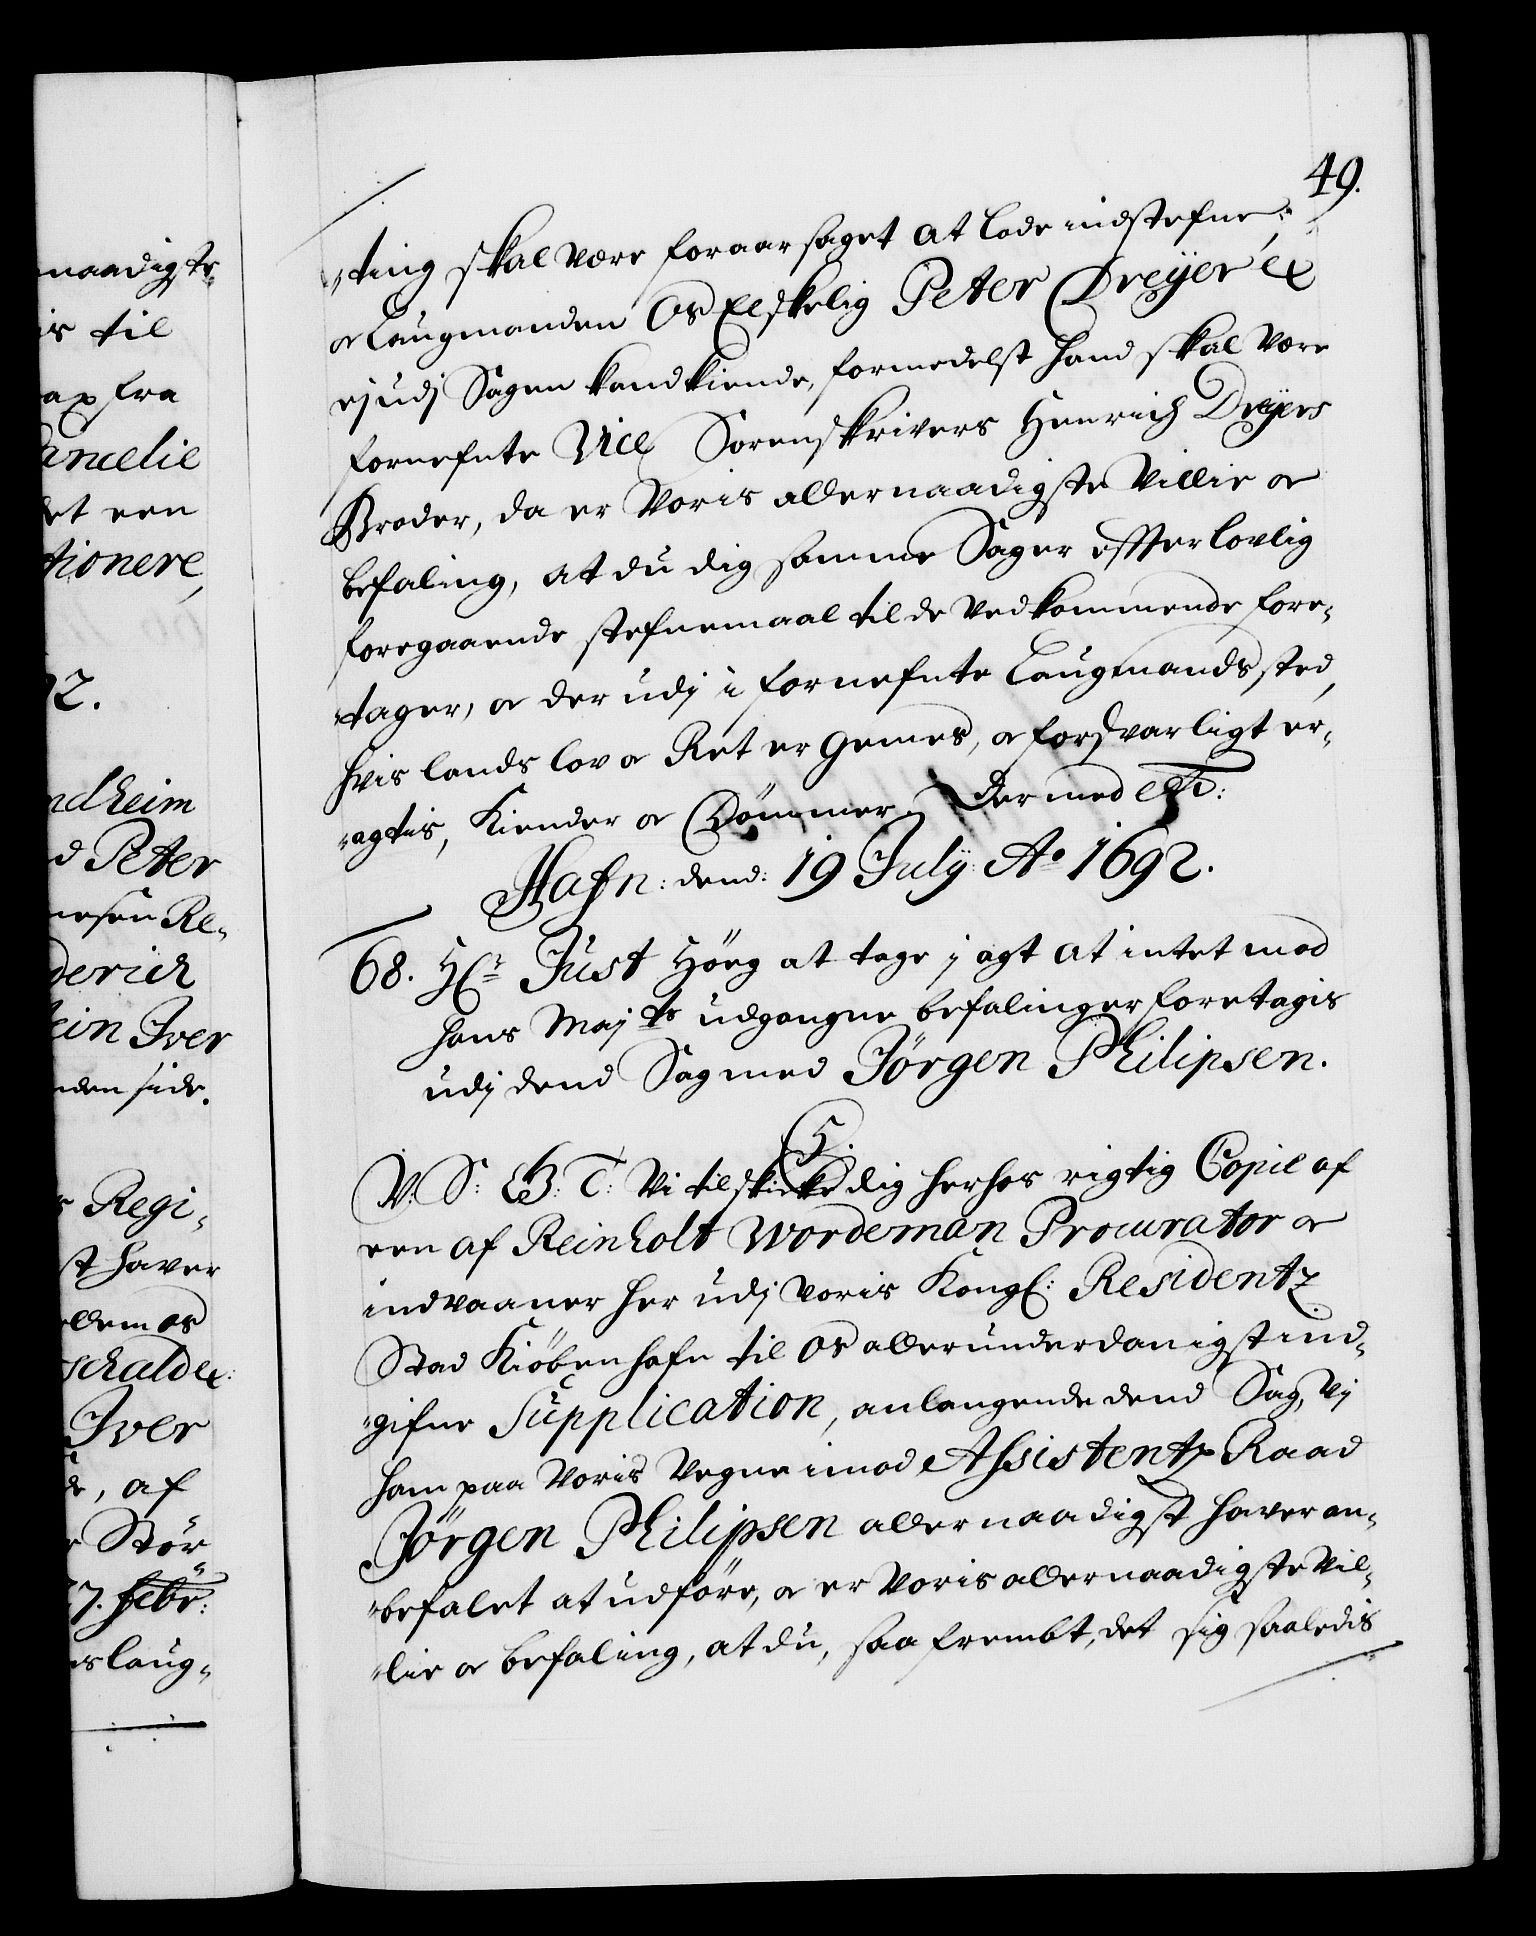 maadigste
is til
ax fra
ancelie
et een
tionere,
92.
ndheim
d Peter
nesen Re-
derich
ein Iver
nden side.
s Regi-
st haver
ellem os
schalder
Iver
de, af
Stör
7. Febr:
laug-
49.
-ting skal være foraarsaget at lade indstefne,
og Laugmanden Os Elskelig Peter Dreyer ex
ej udj Sagen kand kiende, formedelst hand skal være
fornefnte Vice Sorenskrivers Henrich Dreyers
Broder, da er Voris allernaadigste Villie og
befaling, at du dig samme Sager effter lovlig
foregaaende stefnemaal til de Vedkommende fore-
-tager, og der udj i fornefnte Laugmands sted,
hvis lands lov og Ret er Gemes, og forsvarligt er-
-agtis, Kiender og Dömmer. Der med etc:
Hafn: dend: 19 July: Ao 1692.
68. Hr: Just Höeg at tage j agt at intet mod
hans Majts udgangne befalinger foretagis
udj dend Sag med Jörgen Philipsen.
C5.
V. S: G. B: T: Vi tilskicke dig herhos rigtig Copie af
een af Reinholt Wordeman Procurator og
indvaaner her udj Voris Kongl: Residentz
Stad Kiöbenhafn til Os allerunderdanigst ind-
-gifne Supplication, anlangende dend Sag, Vj
ham paa Voris Vegne imod Assistentz Raad
Jörgen Philipsen allernaadigst haver an-
-befalet at udföre, og er Voris allernaadigste Vil-
-lie og befaling, at du, saa fremt, det sig saaledis